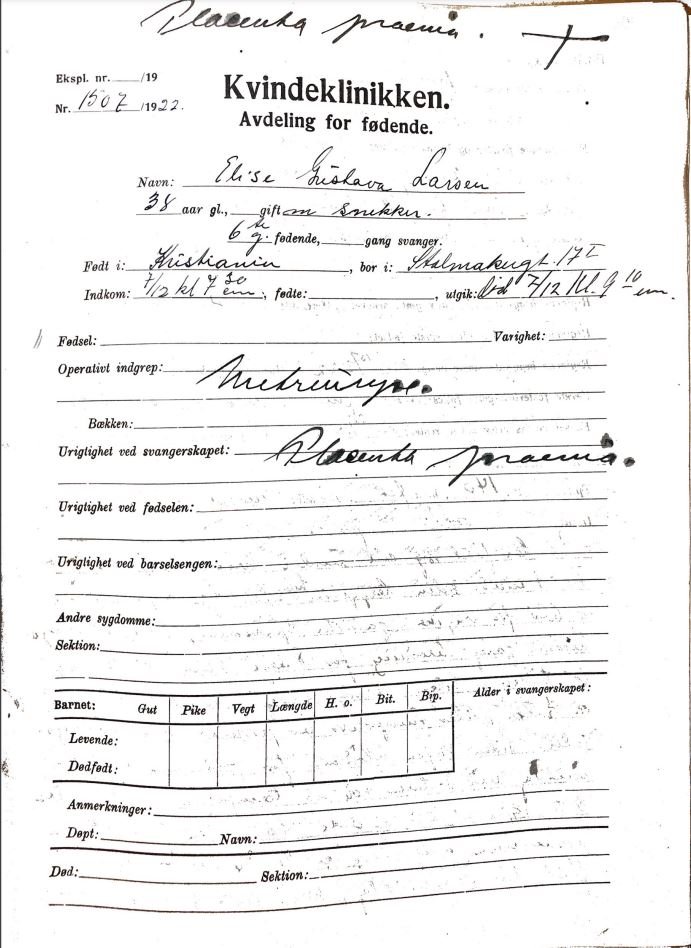 Placenta praevia. +
Ekspl. nr. /19
Nr. 1507 /1922.
Kvindeklinikken.
Avdeling for fødende.
Navn: Elise Gustava Larsen
38 aar gl., gift m snikker.
6te g. fødende, gang svanger.
Født i: Kristiania, bor i: Stolmakergt. 17 I
Indkom: 7/12 kl 7 30 em., fødte: , utgik: Død 7/12 Kl. 9 10 em.
Fødsel: Varighet:
Operativt indgrep: Metreuryse.
Bækken:
Urigtighet ved svangerskapet: Placenta praevia.
Urigtighet ved fødselen:
Urigtighet ved barselsengen:
Andre sygdomme:
Sektion:
Barnet: Gut Pike Vegt Længde H. o. Bit. Bip. Alder i svangerskapet:
Levende:
Dødfødt:
Anmerkninger:
Døpt: Navn:
Død: Sektion: